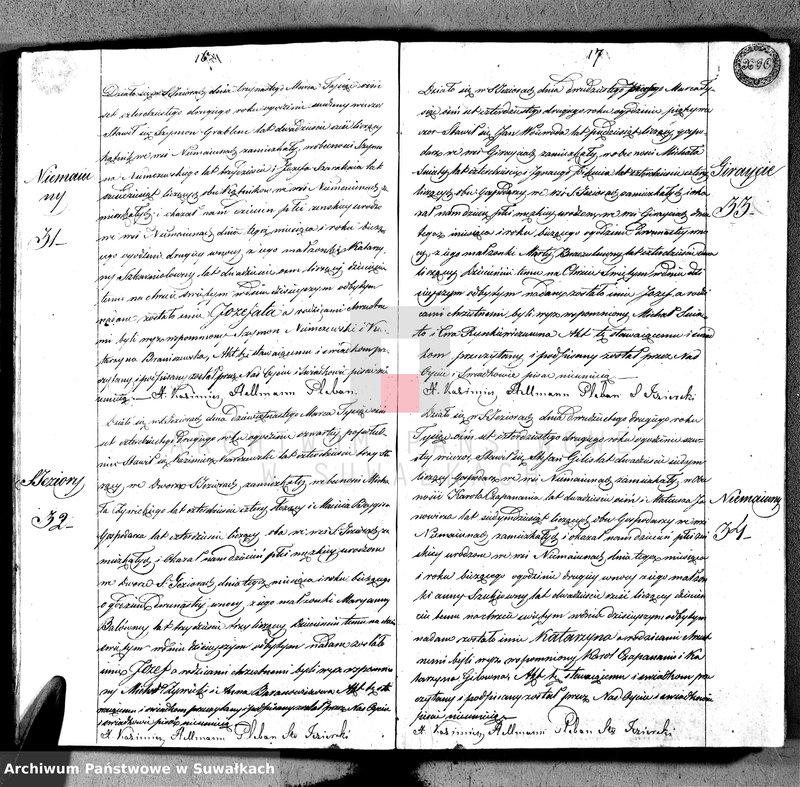 16
Niemaiu
ny
31
Działo się w S Jeziorach dnia trzynastego Marca Tysiąc ośm
set czterdziestego drugiego roku o godzinie siódmey wieczor
Stawił się Szymon lat dwadzieścia ośm liczący
we wsi Niemaiunach zamieszkały, w obecności Szym
na Nimczewskiego lat trzydzieści i Józefa lat
liczących obu we wsi Niemaiunach za
mieszkałych i okazał nam dziecie płci zenskiey urodzo
ne we wsi Niemaiunach dnia tego miesiąca i roku bieżą
cego o godzinie drugiey wnocy z jego małżonki Katarzy
ny lat dwadzieścia siem liczącey dziecięciu
temu na chrzcie świętym w dniu dzisieyszym odbytym
zostało imie Jozefata a rodzicami chrzestne
mi byli wyz wspomniony Szymon Nimczewski i Ka
tarzyna Akt ten stawaiącemu i świadkom prze
czytany i podpisany został przez Nas Oycu i świadkowie pisać nie
umieią
X. Kazimierz Hellmann Pleban
S Jeziory
32
Działo się w S Jeziorach dnia Marca Tysiąc ośm
set czterdziestego drugiego roku o godzinie czwartey po połud
niu Stawił się Kazimierz lat czterdzieści trzy li
czący we dworze S Jeziorach zamieszkały w obecności Micha
ła Żywickiego lat czterdzieści cztery i
Gospodarza lat czterdzieści liczący oba we wsi S Jeziorach za
mieszkałych i Okazał nam dziecie płci męzkiey urodzone
we dworze S Jeziorach dnia tego miesiąca i roku bieżącego
o godzinie dwunastey wnocy z jego małżonki Maryanny
lat trzydzieści trzy liczącey dziecięciu temu na chrzcie
świętym w dniu dzisieyszym odbytym nadane zostało
imie Jozef a rodzicami chrzestnemi byli wyz wspomnio
ny Michał Żywicki i Anna Akt ten sta
waiącemu i świadkom przeczytany i podpisany został przez Nas Oycu
i świadkowie pisać nieumieią
X. Kazimierz Hellmann Pleban Jezierski
17
Giraycie
33
Działo się w S Jeziorach dnia dwudziestego Marca Ty
siąc ośm set czterdziestego drugiego roku o godzinie piątey wie
czor Stawił się Jan lat pięćdziesiąt liczący gospo
darz we wsi Girayciach zamieszkały, w obecności Michała
lat czterdzieści i Ignacego lat czterdzieści cztery
liczących obu Gospodarzy we wsi S Jeziorach zamieszkałych i oka
zał nam dziecie płci męzkiey urodzone we wsi Girayciach dnia
tego miesiąca i roku bieżącego o godzinie dwunastey wno
cy, z jego małżonki Marty lat czterdzieści dwa
liczącey dziecięciu temu na Chrzcie Świętym w dniu dzi
sieyszym odbytym nadany zostało imie Jozef, a rodzi
cami chrzestnemi byli wyz wspomniony Michał
i Ewa Akt ten stawaiącemu i świad
kom przeczytany i podpisany został przez Nas
Oycu i Swiadkowie pisać nieumieią
X. Kazimierz Hellmann Pleban S Jezierski
Niemaiuny
34
Działo się w S Jeziorach dnia dwudziestego drugiego roku
Tysiąc ośm set czterdziestego drugiego roku o godzinie szo
stey wieczor, Stawił się Stefan Gilis lat dwadzieścia siedym
liczący Gospodarz we wsi Niemaiunach zamieszkały, w obe
cności Karola Czapanania lat dwadzieścia ośm i Mateusza Ja
nowicza lat siedymdziesiąt liczących obu Gospodarzy we wsi
Niemaiunach zamieszkałych i okazał nam dziecie płci żeń
skiey urodzone we wsi Niemaiunach dnia tego miesiąca
i roku bieżącego o godzinie drugiey wnocy z jego małżon
ki Anny lat dwadzieścia sześć liczącey dziecie
ciu temu na chrzcie świętym w dniu dzisieyszym odbytym
nadane zostało imie Katarzyna a rodzicami chrzest
nemi byli wyz wspomniony Karol Czapanania i Ka
tarzyna Gilowna, Akt ten stawaiącemu i świadkom prze
czytany i podpisany został przez Nas Oycu i świadkowie
pisać nieumieią
X. Kazimierz Hellmann Pleban Jezierski
ARCHIWUM PAŃSTWOWE
W SUWAŁKACH
Archiwum Państwowe w Suwałkach